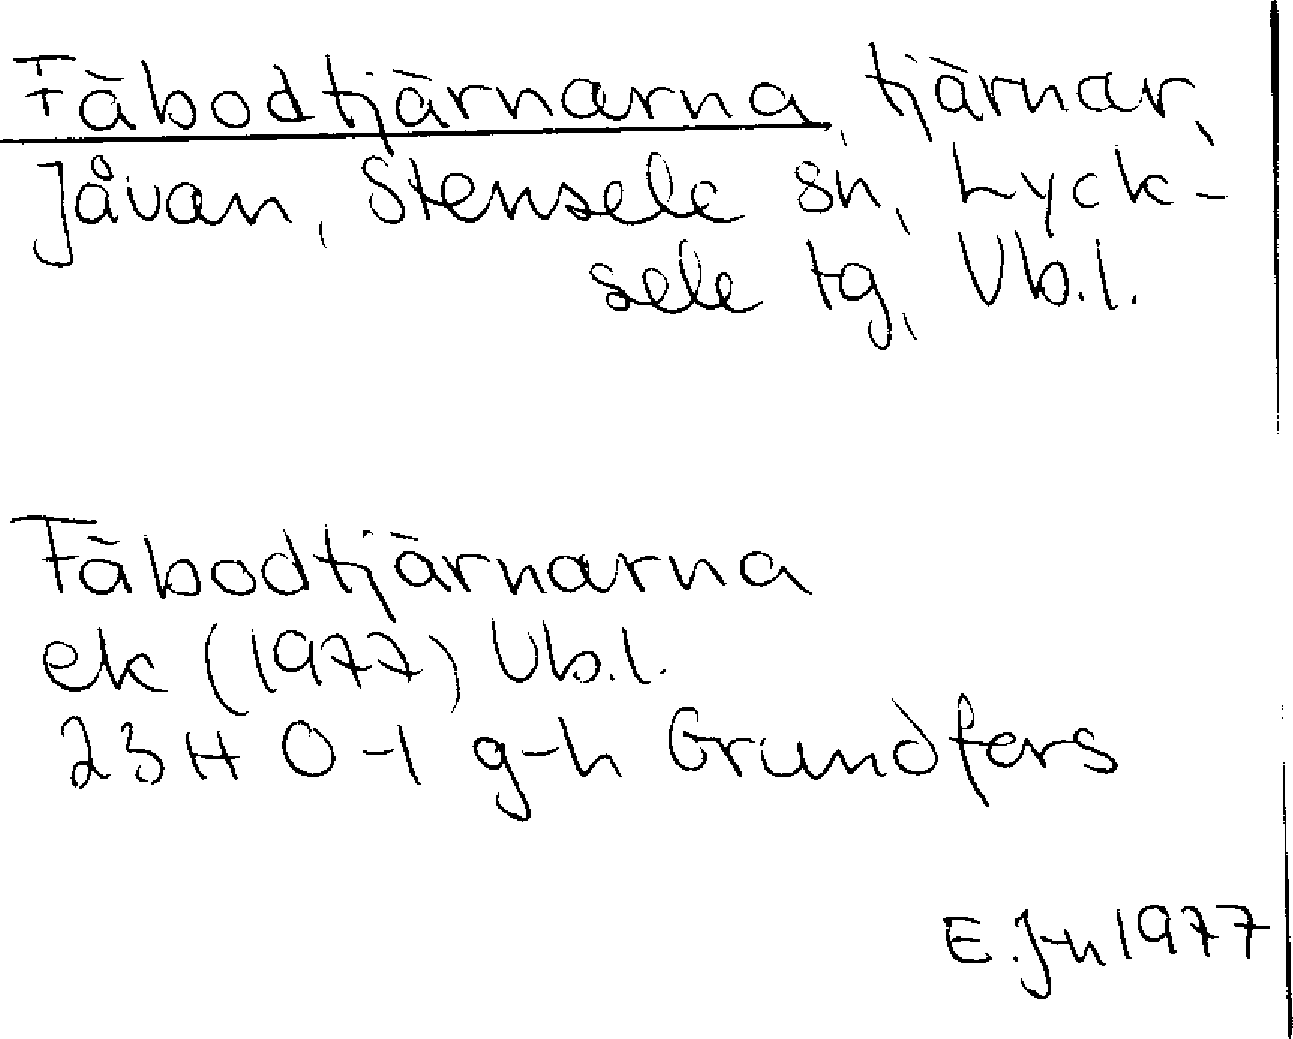 Fäbodtjärnarna, tjärnar,
Jåvan, Stensele sn, Lyck-
sele tg, Vb.l.
Fäbodtjärnarna
ek (1977) Vb.l.
23H 0-1 g-h Grundfors
E.J-n 1977